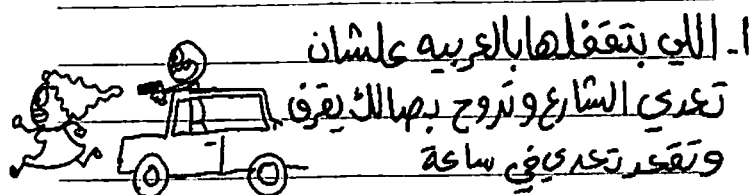 ١- اللي بتقفلها بالعربيه علشان
تعدي الشارع و تروح بصالك بقرف
وتقعد تعدي في ساعة